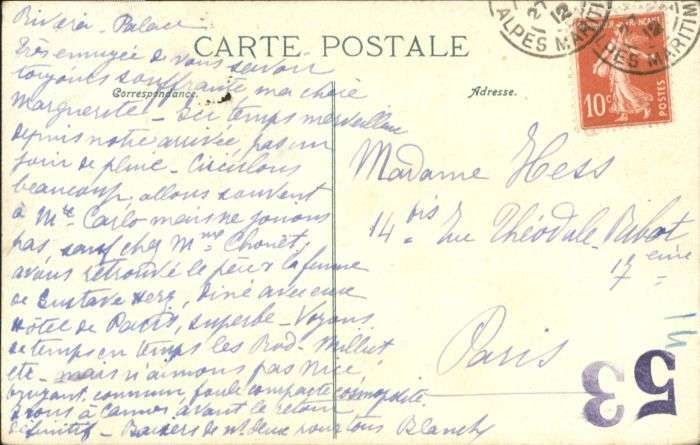 Riviera - Palace
CARTE POSTALE
Très ennuyée de vous savoir
toujours souffrante ma chère
Correspondance.
Marguerite - Ici temps merveilleux
depuis notre arrivée, pas un
jour de pluie - Circulons
beaucoup, allons souvent
à Mte Carlo mais ne jouons
pas, sauf chez Mme Chouët,
avons retrouvé le père & la femme
de Gustave Herz, diné avec eux
Hôtel de Paris, superbe - Voyons
de temps en temps les Rod. Millut,
etc - mais n'aimons pas Nice,
bruyant, commun, foule compacte cosmopolite.
irons à Cannes avant le retour
définitif - Baisers de nous deux pour tous Blanche
Adresse.
Madame Hess
14 bis Rue Théodule Ribot
17 eme
Paris
27 12
ALPES MARITIM
PES MARITIM
10c
POSTES
53